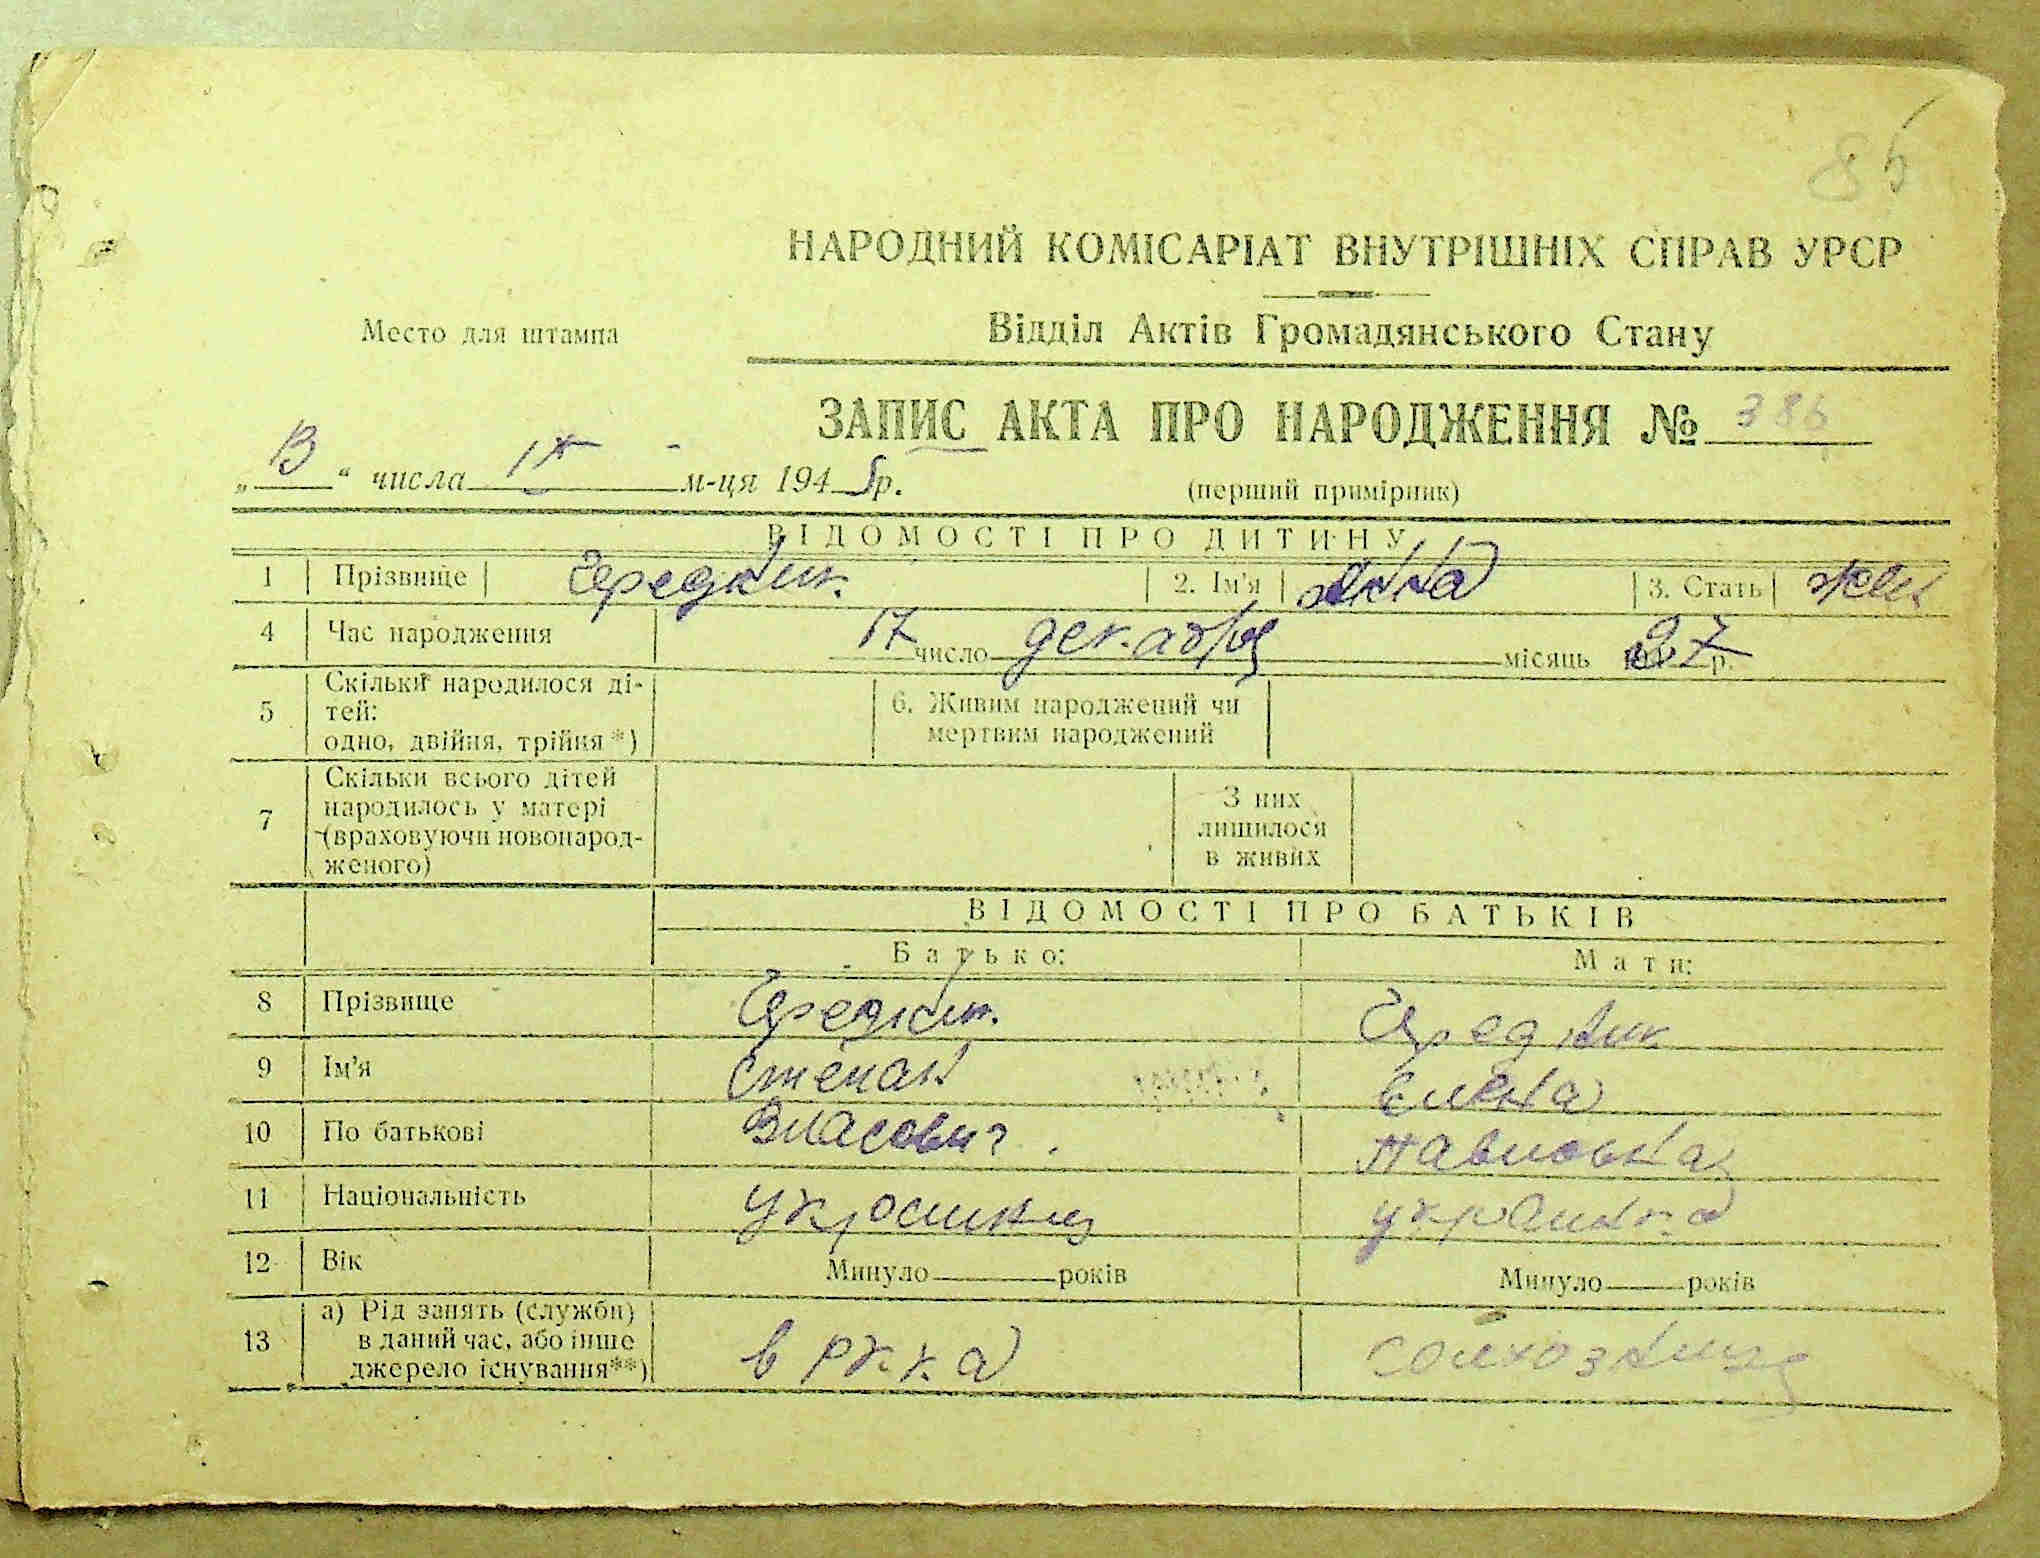 86
НАРОДНИЙ КОМІСАРІАТ ВНУТРІШНІХ СПРАВ УРСР
Место для штампа
Відділ Актів Громадянського Стану
ЗАПИС АКТА ПРО НАРОДЖЕННЯ № 386
„13“ числа IX м-ця 1945 р.
(перший примірник)
ВІДОМОСТІ ПРО ДИТИНУ
1 Прізвище Чередник 2. Ім'я Анна 3. Стать жен
4 Час народження 17 число декабря місяць 27 р.
5 Скільки народилося ді-
тей:
одно, двійня, трійня*)
6. Живим народжений чи
мертвим народжений
7 Скільки всього дітей
народилось у матері
(враховуючи новонарод-
женого)
З них
лишилося
в живих
ВІДОМОСТІ ПРО БАТЬКІВ
Батько: Мати:
8 Прізвище Чередник Чередник
9 Ім'я Степан Елена
10 По батькові Власович Павловна
11 Національність украинец украинка
12 Вік Минуло роктв Минуло років
13 а) Рід занять (служби)
в даний час, або інше
джерело існування**)
в РККА